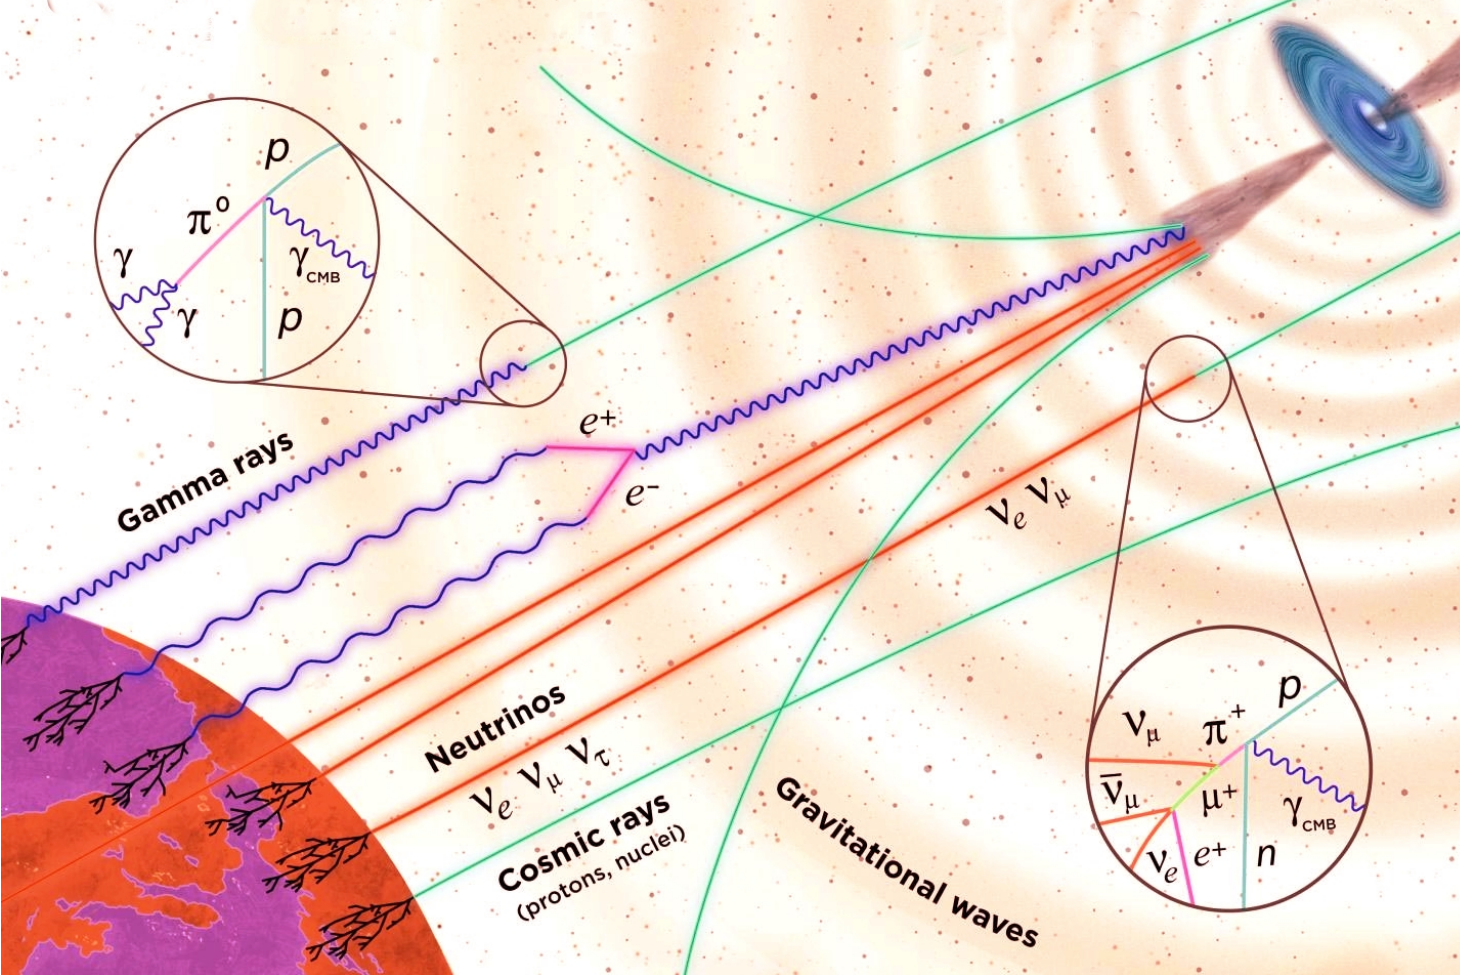 p
π⁰
γ
γ CMB
γ
p
Gamma rays
e+
e-
ν_e ν_μ
Neutrinos
ν_e ν_μ ν_τ
Cosmic rays
(protons, nuclei)
Gravitational waves
p
π⁺
ν_μ
ν̅_μ
μ⁺
γ CMB
ν_e
e⁺
n